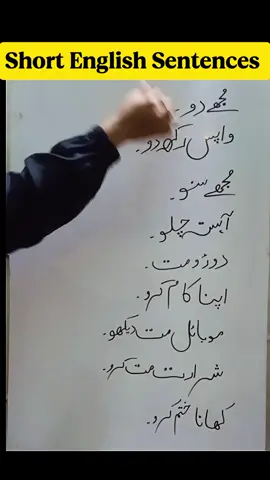 Short English Sentences
مجھے دو۔
واپس رکھ دو۔
مجھے سنو۔
آہستہ چلو۔
دوڑو مت۔
اپنا کام کرو۔
موبائل مت دیکھو۔
شرارت مت کرو۔
کھانا ختم کرو۔